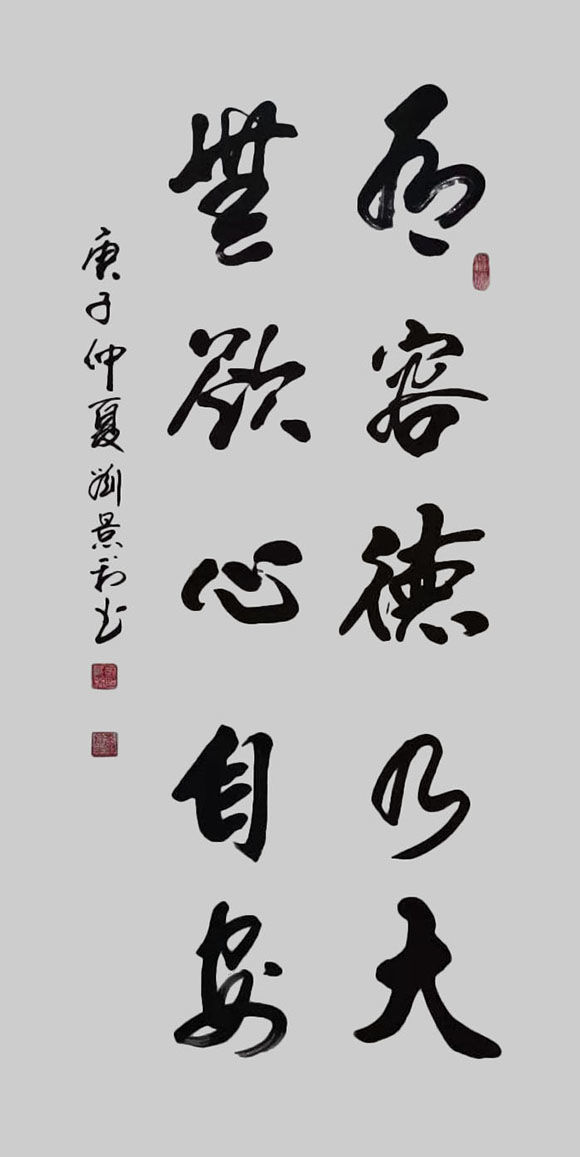 有容德乃大
無欲心自安
庚子仲夏劉景利书